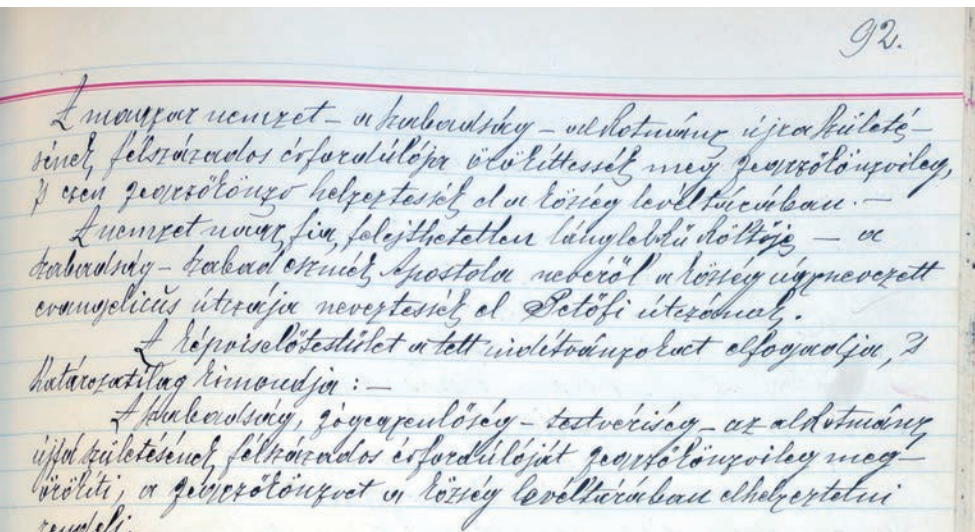 92.
A magyar nemzet – a szabadság – alkotmány újra születé-
sének, félszázados évfordúlója örökíttessék meg jegyzőkönyvileg,
s ezen jegyzőkönyv helyeztessék el a község levéltárában. –
A nemzet nagy fia, felejthetetlen lánglelkű költője – a
szabadság – szabad eszmék Apostola nevéről a község úgynevezett
evangelicús útczája neveztessék el Petőfi útczának.
A képviselőtestület a tett indítványokat elfogadja, s
határozatilag kimondja: –
A szabadság, jogegyenlőség – testvériség – az alkotmány
újjá születésének, félszázados évfordúlóját jegyzőkönyvileg meg-
örökíti, a jegyzőkönyvet a község levéltárában elhelyeztetni
rendeli.